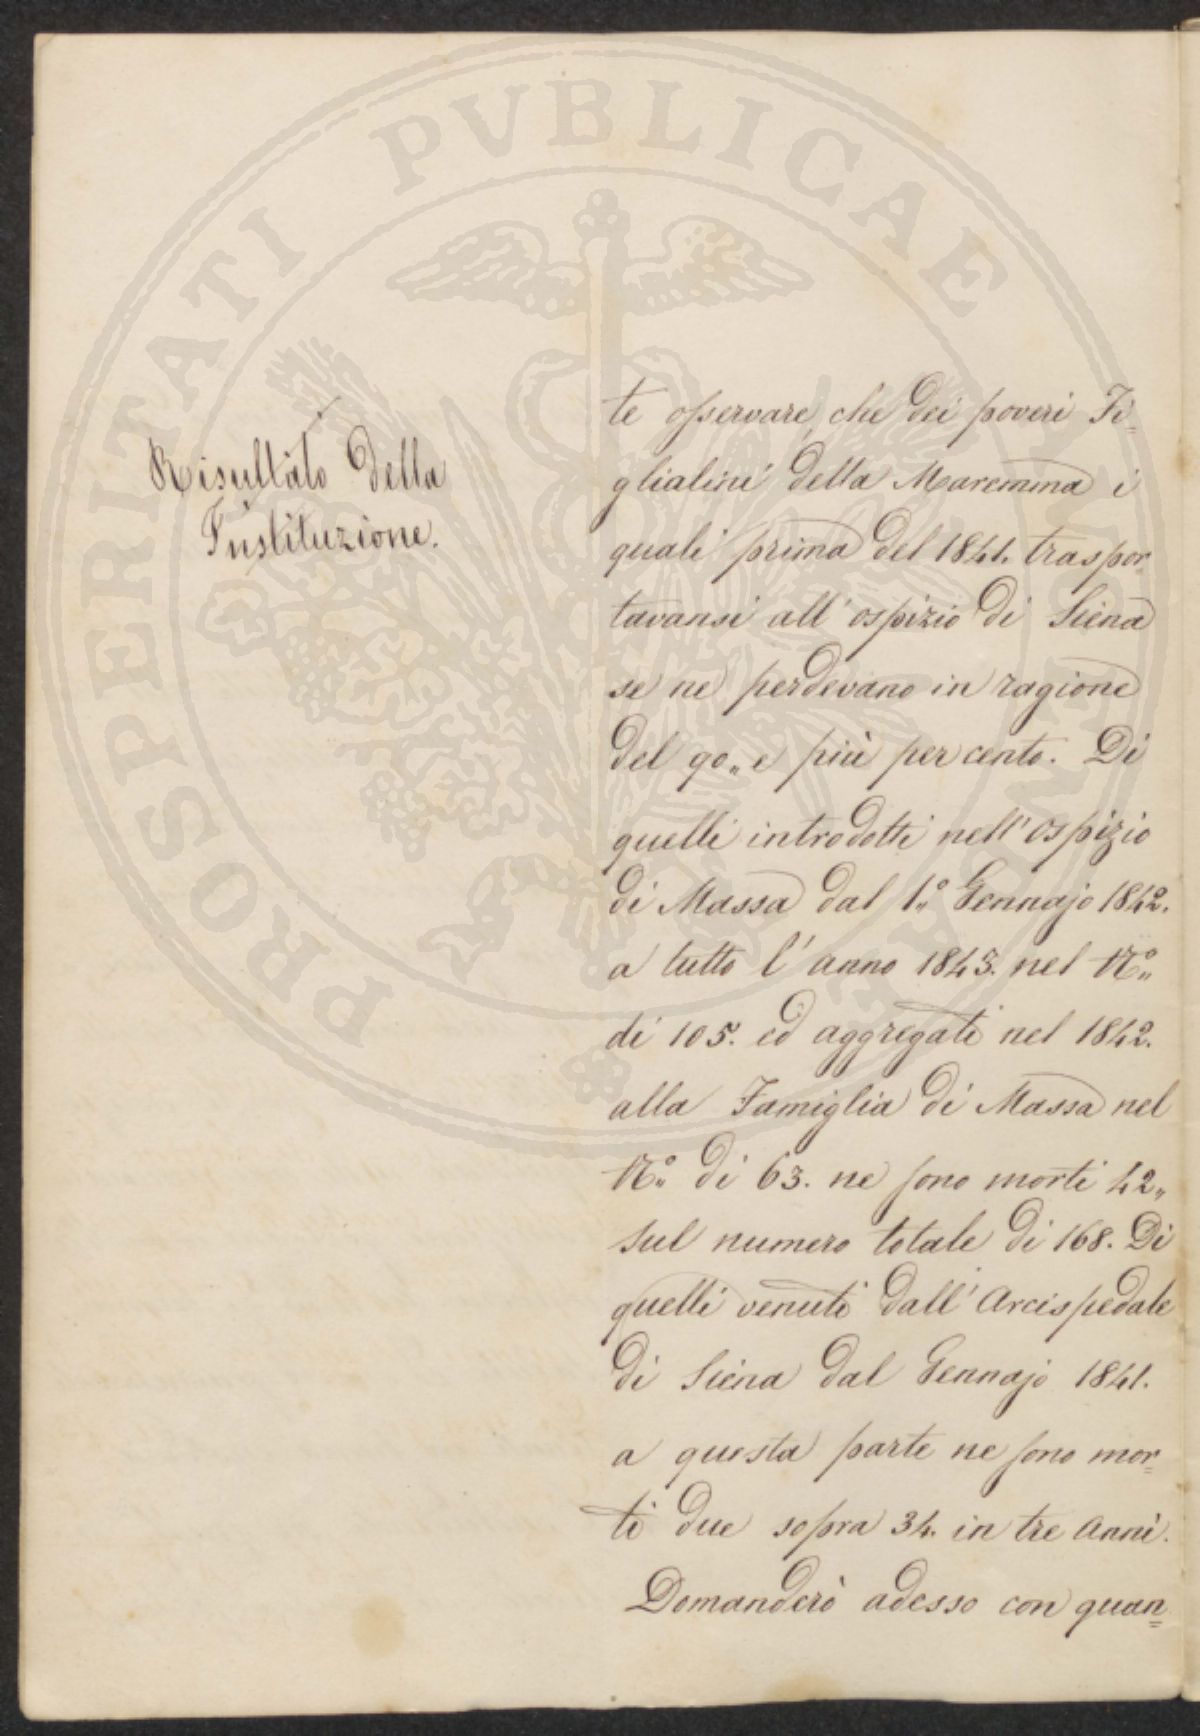 PROSPERITATI PVBLICAE
Risultato della
Instituzione.
te osservare, che dei poveri Fi-
glialini della Maremma i
quali prima del 1841. traspor-
tavansi all' ospizio di Siena
se ne perdevano in ragione
del 90,, e più per cento. Di
quelli introdotti nell' Ospizio
di Massa dal 1° Gennajo 1842.
a tutto l' anno 1843. nel N°
di 105. ed aggregati nel 1842.
alla Famiglia di Massa nel
N° di 63. ne sono morti 42,,
sul numero totale di 168. Di
quelli venuti dall' Arcispedale
di Siena dal Gennajo 1841.
a questa parte ne sono mor=
ti due sopra 34. in tre Anni.
Domanderò adesso con quan=